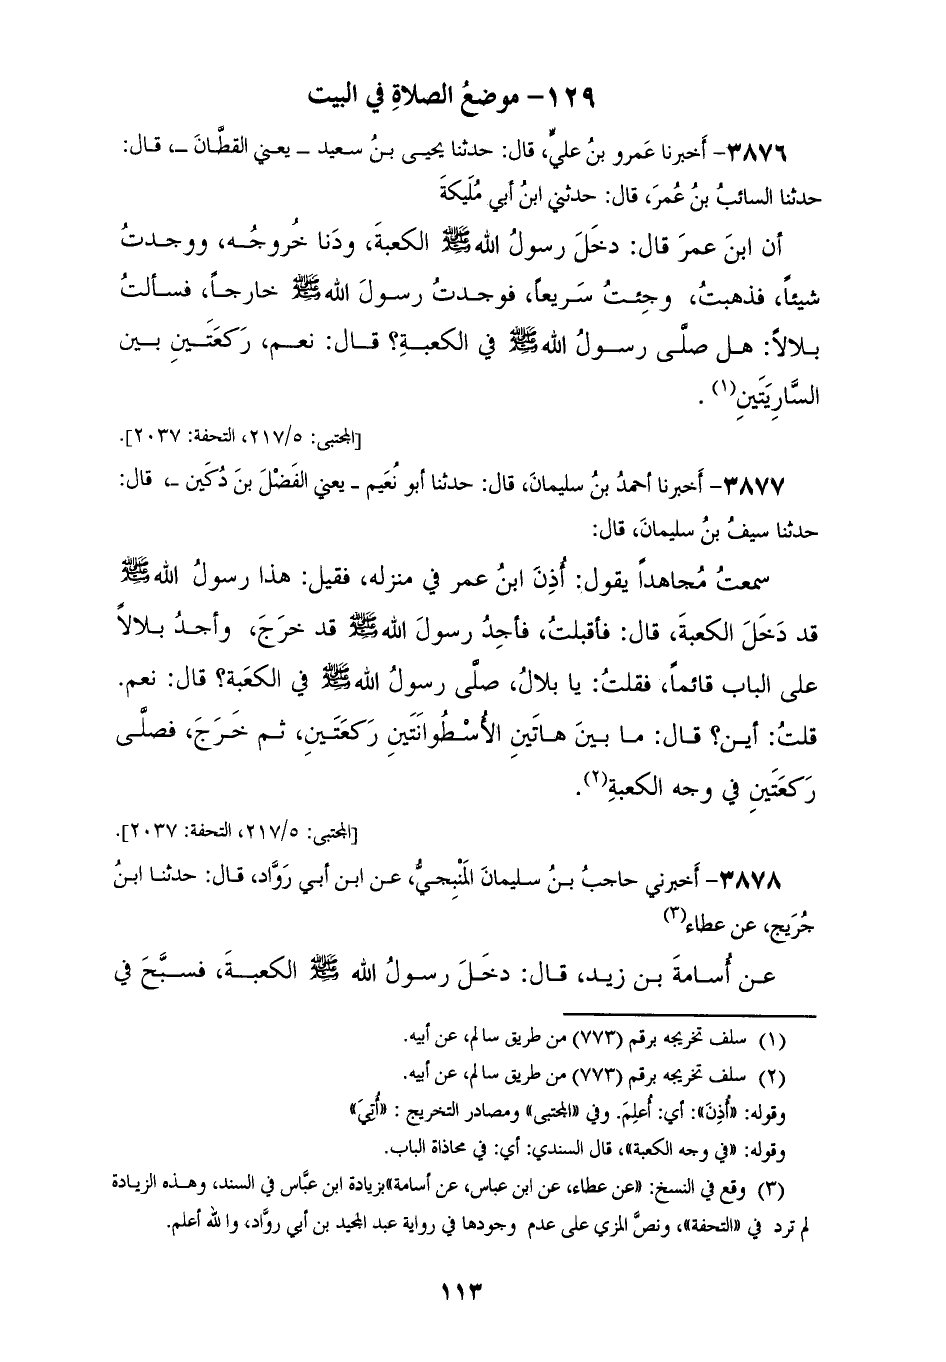 ١٢٩- موضعُ الصلاةِ في البيت
٣٨٧٦- أَخبرنا عَمرو بنُ عليٍّ، قال: حدثنا يحيى بنُ سعيد ـ يعني القطَّانَ ـ، قال:
حدثنا السائبُ بنُ عُمرَ، قال: حدثني ابنُ أبي مُلَيكةَ
أن ابنَ عمرَ قال: دخَلَ رسولُ الله ﷺ الكعبةَ، ودَنا خُروجُه، ووجدتُ
شيئاً، فذهبتُ، وجِئتُ سَريعاً، فوجدتُ رسولَ الله ﷺ خارجاً، فسألتُ
بلالاً: هل صلَّى رسولُ الله ﷺ في الكعبةِ؟ قال: نعم، رَكعَتَينِ بين
السَّارِيَتَينِ(١) .
[المجتبى: ٢١٧/٥، التحفة: ٢٠٣٧].
٣٨٧٧- أَخبرنا أحمدُ بنُ سليمانَ، قال: حدثنا أبو نُعَيم ـ يعني الفَضْلَ بنَ دُكَين ـ، قال:
حدثنا سيفُ بنُ سليمانَ، قال:
سمعتُ مُجاهداً يقول: أُذِنَ ابنُ عمر في منزله، فقيل: هذا رسولُ الله ﷺ
قد دَخَلَ الكعبةَ، قال: فأقبلتُ، فأجِدُ رسولَ الله ﷺ قد خرَجَ، وأجدُ بلالاً
على الباب قائماً، فقلتُ: يا بلالُ، صلَّى رسولُ الله ﷺ في الكعَبة؟ قال: نعم.
قلتُ: أين؟ قال: ما بينَ هاتَينِ الأُسْطُوانَتَينِ رَكعَتَينِ، ثم خَرَجَ، فصلَّى
رَكعَتَينِ في وجه الكعبةِ(٢).
[المجتبى: ٢١٧/٥، التحفة: ٢٠٣٧].
٣٨٧٨- أَخبرني حاجبُ بنُ سليمانَ المَنْبِجيُّ، عن ابن أبي رَوَّاد، قال: حدثنا ابنُ
جُرَيج، عن عطاء(٣)
عن أُسامةَ بن زيد، قال: دخَلَ رسولُ الله ﷺ الكعبةَ، فسبَّحَ في
(١) سلف تخريجه برقم (٧٧٣) من طريق سالم، عن أبيه.
(٢) سلف تخريجه برقم (٧٧٣) من طريق سالم، عن أبيه.
وقوله: «أُذِنَ»: أي: أُعلِمَ. وفي «المجتبى» ومصادر التخريج : «أُتِيَ»
وقوله: «في وجه الكعبة»، قال السندي: أي: في محاذاة الباب.
(٣) وقع في النسخ: «عن عطاء، عن ابن عباس، عن أسامة»بزيادة ابن عبَّاس في السند، وهذه الزيادة
لم ترد في «التحفة»، ونصَّ المزي على عدم وجودها في رواية عبد المجيد بن أبي روَّاد، والله أعلم.
١١٣